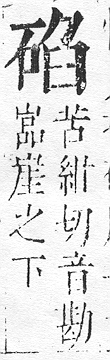 苦紺切音勘
嵓崖之下